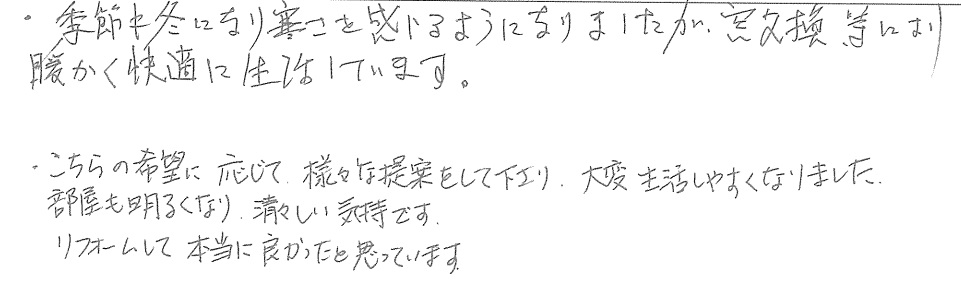 ・季節も冬になり寒さを感じるようになりましたが、窓交換等により
暖かく快適に生活しています。
・こちらの希望に応じて、様々な提案をして下さり、大変生活しやすくなりました。
部屋も明るくなり、清々しい気持です。
リフォームして本当に良かったと思っています。